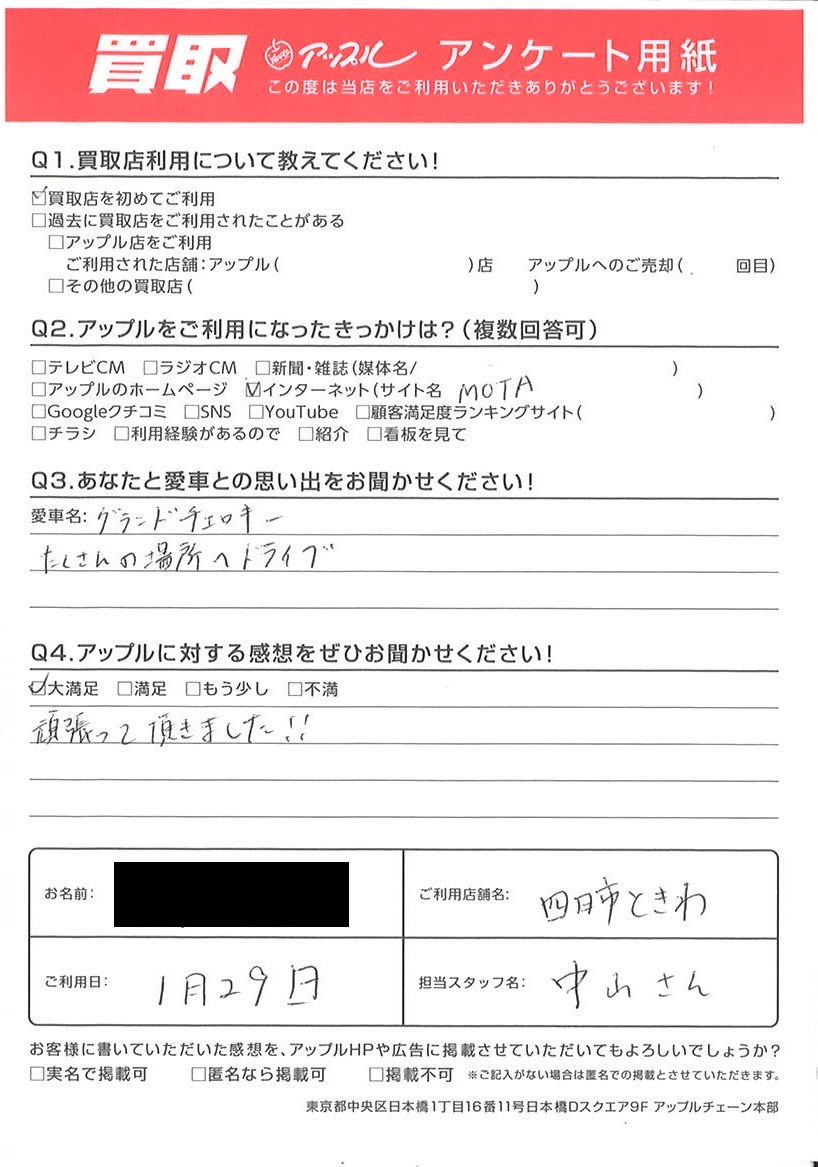 買取 アップル アンケート用紙
この度は当店をご利用いただきありがとうございます!
Q1.買取店利用について教えてください!
☑買取店を初めてご利用
□過去に買取店をご利用されたことがある
□アップル店をご利用
ご利用された店舗:アップル( )店 アップルへのご売却( 回目)
□その他の買取店( )
Q2.アップルをご利用になったきっかけは?(複数回答可)
□テレビCM □ラジオCM □新聞・雑誌(媒体名/ )
□アップルのホームページ ☑インターネット(サイト名 MOTA )
□Googleクチコミ □SNS □YouTube □顧客満足度ランキングサイト( )
□チラシ □利用経験があるので □紹介 □看板を見て
Q3.あなたと愛車との思い出をお聞かせください!
愛車名: グランドチェロキー
たくさんの場所へドライブ
Q4.アップルに対する感想をぜひお聞かせください!
☑大満足 □満足 □もう少し □不満
頑張って頂きました!!
お名前: ご利用店舗名: 四日市ときわ
ご利用日: 1月29日 担当スタッフ名: 中山さん
お客様に書いていただいた感想を、アップルHPや広告に掲載させていただいてもよろしいでしょうか?
□実名で掲載可 □匿名なら掲載可 □掲載不可 ※ご記入がない場合は匿名での掲載とさせていただきます。
東京都中央区日本橋1丁目16番11号日本橋Dスクエア9F アップルチェーン本部